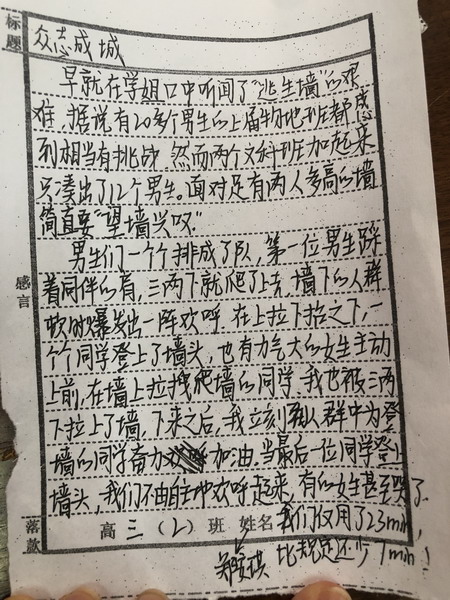 标题
众志成城
早就在学姐口中听闻了“逃生墙”的艰
难，据说有20多个男生的上届物地班都感
到相当有挑战，然而两个文科班加起来
只凑出了12个男生。面对足有两人多高的墙
简直要“望墙兴叹”
男生们一个个排成了队，第一位男生踩
着同伴的肩，三两下就爬了上去，墙下的人群
瞬时爆发出一阵欢呼。在上拉下抬之下，一
个个同学登上了墙头，也有力气大的女生主动
上前，在墙上拉拽爬墙的同学。我也被三两
下拉上了墙，下来之后，我立刻到人群中为登
墙的同学奋力加油。当最后一位同学登上
墙头，我们不由自主地欢呼起来，有的女生甚至哭了
感言
落款
高三（2）班 姓名
我们仅用了23min，
比规定还少7min！